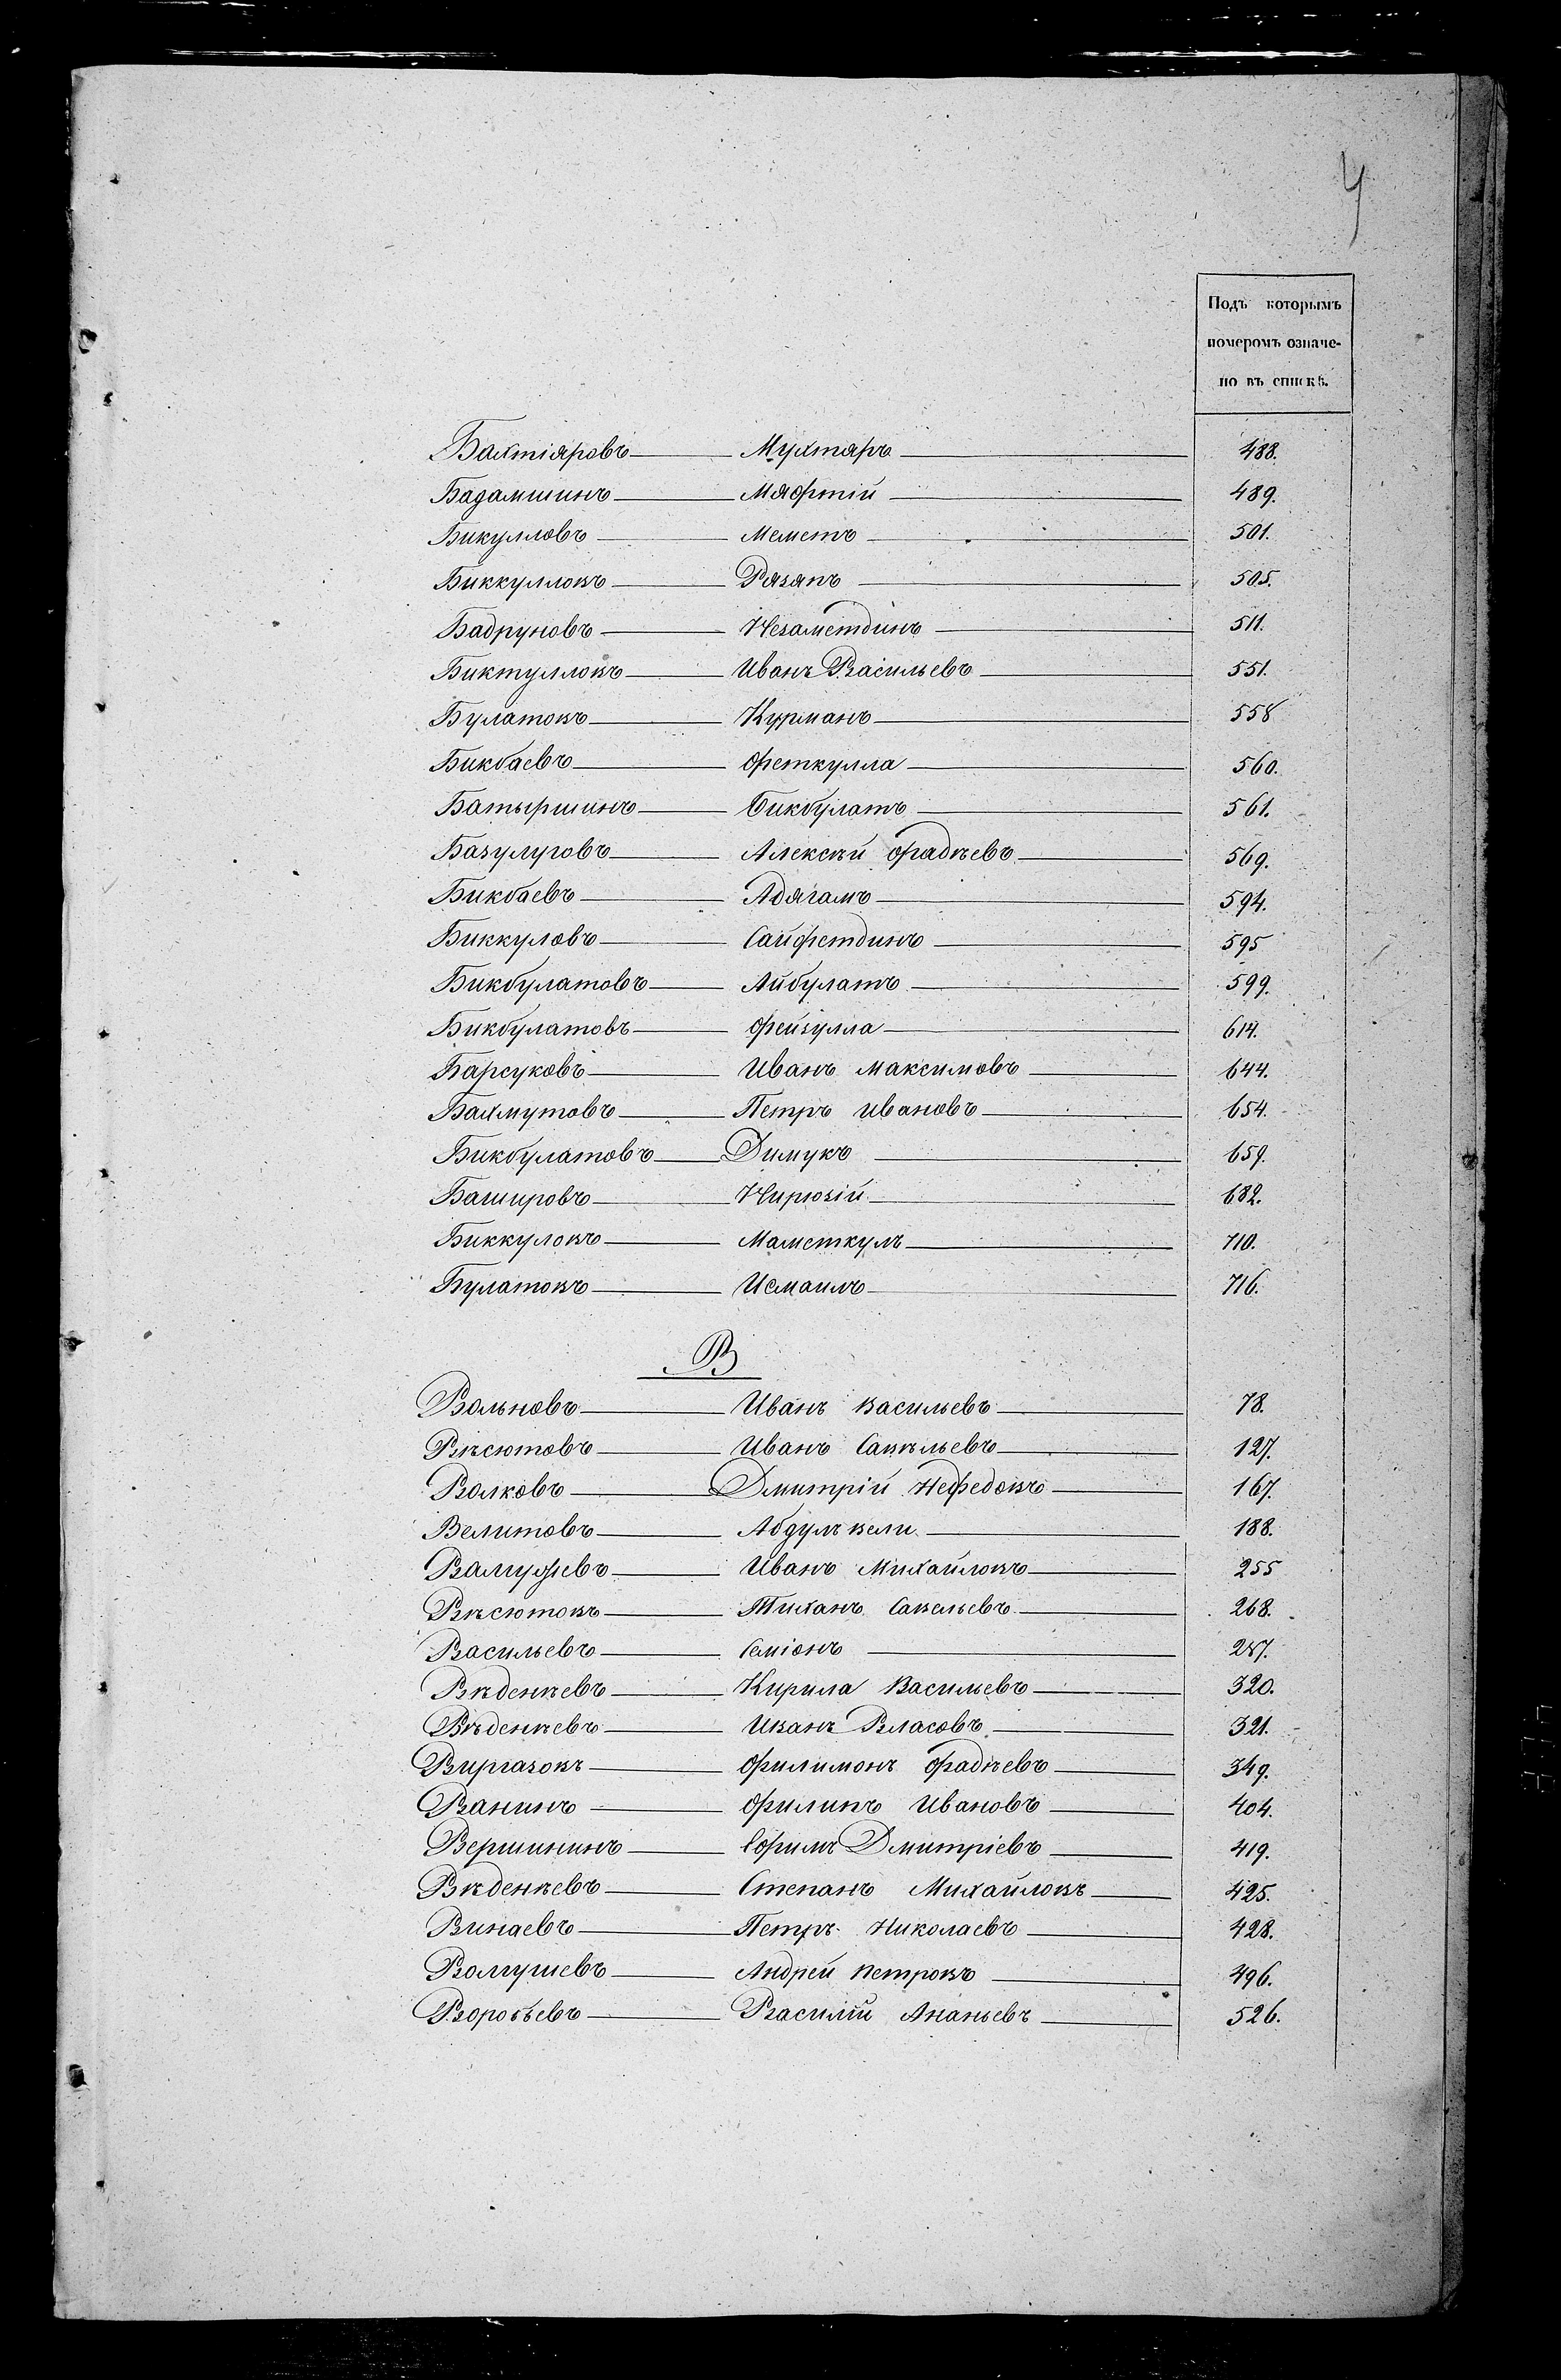 4
Подъ которымъ
номеромъ означе-
но въ спискѣ.
Бахтіяровъ Мухтяръ 488.
Бадамшинъ Мяфтій 489.
Бикулловъ Меметъ 501.
Биккулловъ Рязяпъ 505.
Бадруновъ Незаметдинъ 511.
Биктулловъ Иванъ Васильевъ 551.
Булатовъ Курманъ 558
Бикбаевъ Феткулла 560.
Батыршинъ Бикбулатъ 561.
Базулуровъ Алексѣй Фадѣевъ 569.
Бикбаевъ Адягамъ 594.
Биккуловъ Сайфетдинъ 595
Бикбулатовъ Айбулатъ 599.
Бикбулатовъ Фейзулла 614.
Барсуковъ Иванъ Максимовъ 644.
Бахмутовъ Петръ Ивановъ 654.
Бикбулатовъ Димукъ 659.
Башировъ Нирюзій 682.
Биккуловъ Маметкулъ 710.
Булатовъ Исмаилъ 716.
В
Вольновъ Иванъ Васильевъ 78.
Вѣсютовъ Иванъ Савѣльевъ 127.
Волковъ Дмитрій Нефедовъ 167.
Велитовъ Абдулъ вели 188.
Иванъ Михайловъ 255
Вѣсютовъ Тиханъ Савельевъ 268.
Васильевъ Семіонъ 287.
Вѣденѣевъ Кирила Васильевъ 320.
Вѣденѣевъ Иванъ Власовъ 321.
Виргазовъ Филимонъ Фадѣевъ 349.
Ванинъ Филипъ Ивановъ 404.
Вершининъ Ефимъ Дмитріевъ 419.
Вѣденѣевъ Степанъ Михайловъ 425.
Винаевъ Петръ Николаевъ 428.
Волгушевъ Андрей Петровъ 496.
Воробьевъ Василій Ананьевъ 526.